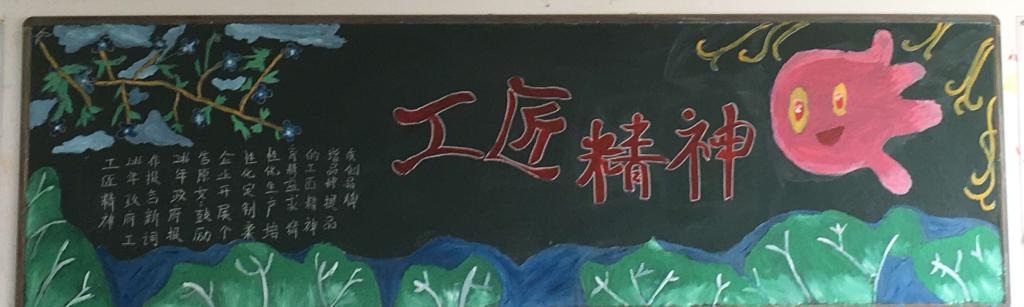 工匠精神
工匠精神
16年政府工
作报告新词
16年政府报
告原文鼓励
企业开展个
性化定制柔
性化生产培
育精益求精
的工匠精神
增品种提品
质创品牌